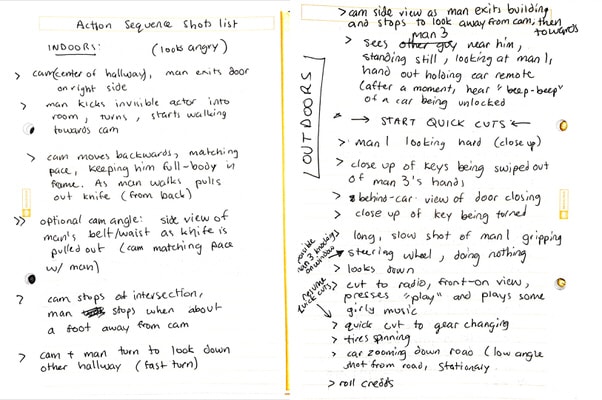 Action Sequence Shots list
INDOORS: (look angry)
> cam (center of hallway), man exits door
on right side
> man kicks invisible actor into
room, turns, starts walking
towards cam
> cam moves backwards, matching
pace, keeping him full-body in
frame. As man walks pulls
out knife (from back)
>> optional cam angle: side view of
man's belt/waist as knife is
pulled out (cam matching pace
w/ man)
> cam stops at intersection,
man stops when about
a foot away from cam
> cam + man turn to look down
other hallway (fast turn)
OUTDOORS
> cam side view as man exits building
and stops to look away from cam, then
towards
man 3
> sees other guy near him,
standing still, looking at man 1,
hand out holding car remote
(after a moment, hear "beep-beep"
of a car being unlocked
→ START QUICK CUTS ←
> man 1 looking hard (close up)
> close up of keys being swiped out
of man 3's hands
> behind-car view of door closing
> close up of key being turned
> long, slow shot of man 1 gripping
steering wheel, doing nothing
possible
man 3 knocking
on window
> looks down
> cut to radio, front-on view,
presses "play" and plays some
girly music
resume
quick cuts
> quick cut to gear changing
> tires spinning
> car zooming down road (low angle
shot from road, stationary
> roll credits